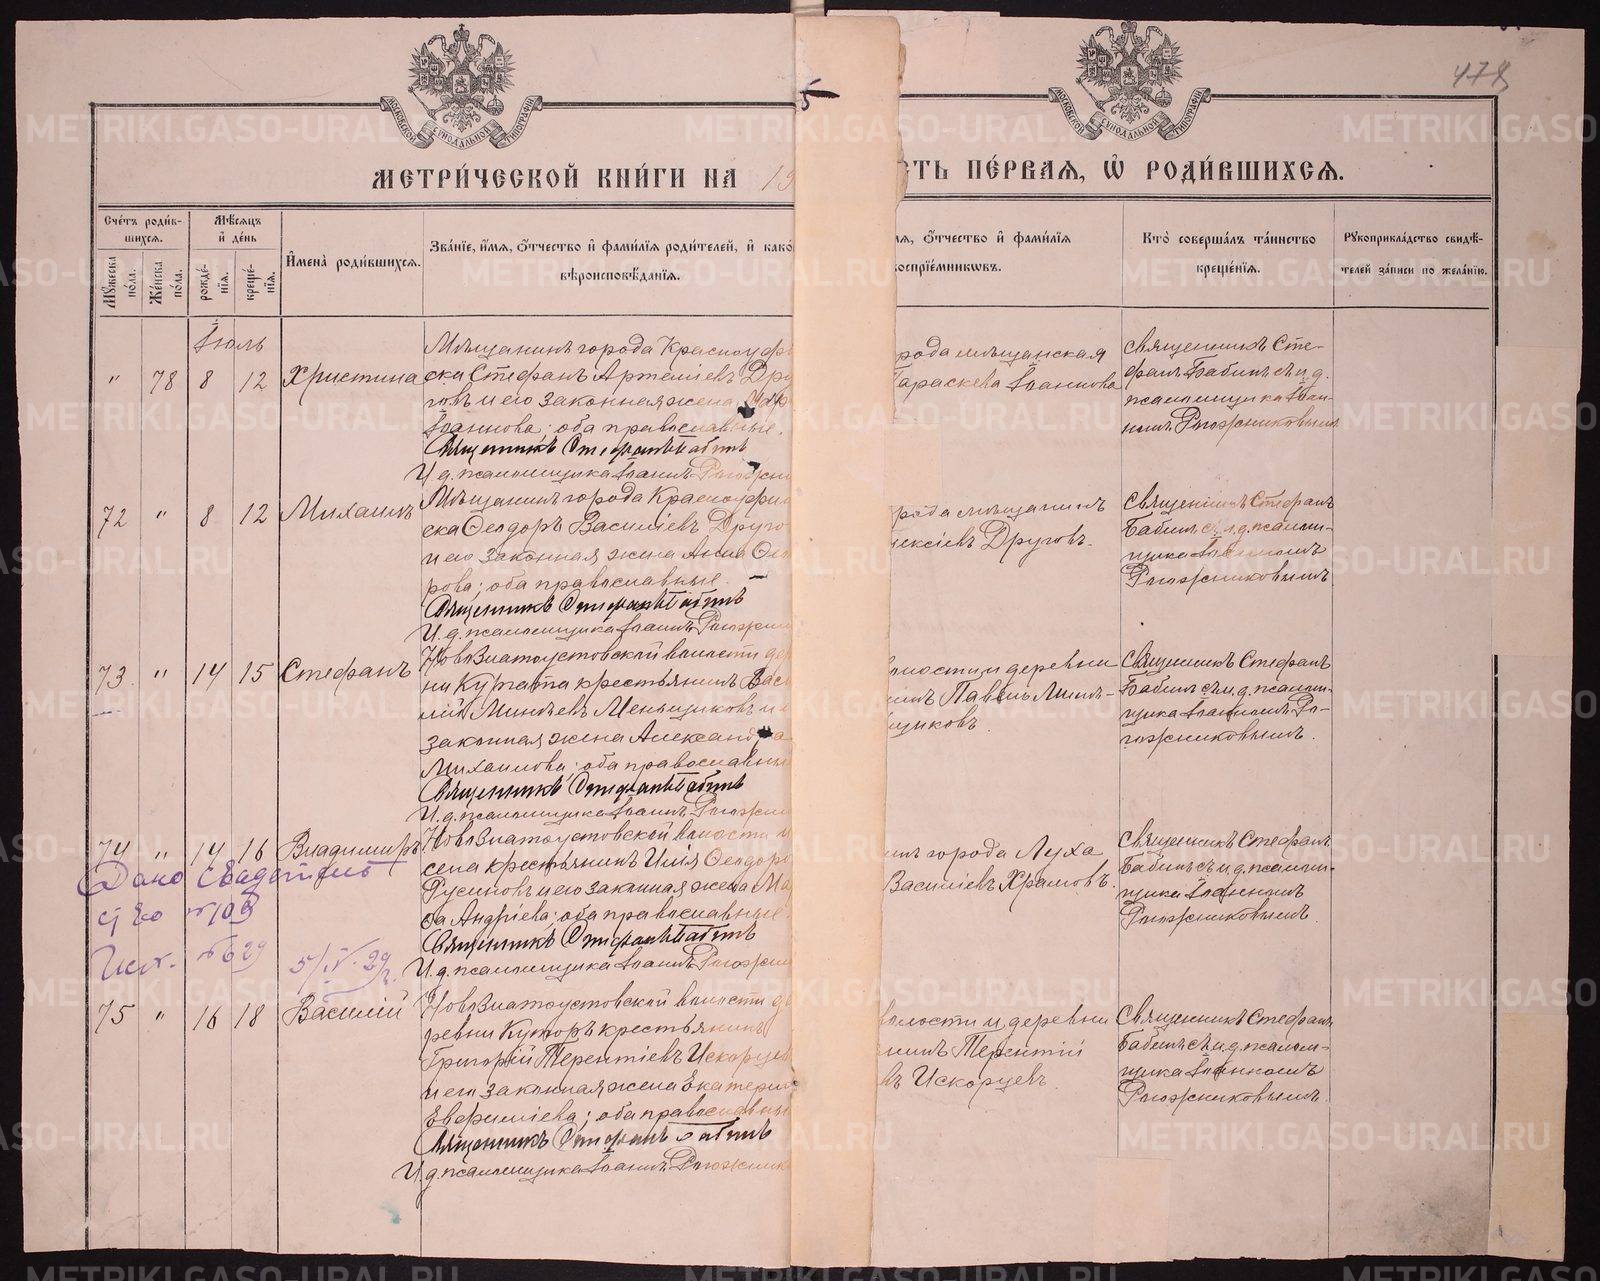 478
5
МОСКОВСКОЙ СѴНОДАЛЬНОЙ ТИПОГРАФІИ
МОСКОВСКОЙ СѴНОДАЛЬНОЙ ТИПОГРАФІИ
МЕТРИ́ЧЕСКОЙ КНИ́ГИ НА 19
СТЬ ПЕ́РВАЯ, Ѿ РОДИ́ВШИХСЯ.
Сче́тъ роди́в-
шихся.
Му́жеска по́ла.
Же́нска по́ла.
Мѣ́сяцъ
и҆ де́нь
рожде́нїя.
креще́нїя.
И҆мена̀ роди́вшихся.
Зва́нїе, и҆́мя, ѻ҆́тчество и҆ фами́лїя роди́телей, и҆ како́
вѣроисповѣ́данїя.
мя, ѻ҆́тчество и҆ фами́лїя
воспрїе́мниковъ.
Кто̀ соверша́лъ та́инство
креще́нїя.
Рукоприкла́дство свидѣ́-
телей за́писи по жела́нїю.
Іюль
" 78 8 12 Христина
Мѣщанинъ города Красноуфи
ска Стефанъ Артеміевъ Дру
говъ и его законная жена Мар
Іоаннова; оба православные.
Священникъ Стефанъ Бабинъ
И. д. псаломщика Іоаннъ Рогожни
рода мѣщанская
Параскева Іоаннова
Священникъ Сте-
фанъ Бабинъ съ и. д.
псаломщика Іоан-
номъ Рогожниковымъ
72 " 8 12 Михаилъ
Мѣщанинъ города Красноуфи
ска Ѳеодоръ Василіевъ Друго
и его законная жена Анна Ѳео
рова; оба православные.
Священникъ Стефанъ Бабинъ
И. д. псаломщика Іоаннъ Рогожни
рода мѣщанинъ
лексіевъ Друговъ.
Священникъ Стефанъ
Бабинъ съ и. д. псалом-
щика Іоанномъ
Рогожниковымъ
73 " 14 15 Стефанъ
НовоЗлатоустовской волости де
ни Куртата крестьянинъ Васи
лій Минѣевъ Меньщиковъ и е
законная жена Александра
Михаилова; оба православны
Священникъ Стефанъ Бабинъ
И. д. псаломщика Іоаннъ Рогожни
волости и деревни
нинъ Павелъ Минѣ-
щиковъ.
Священникъ Стефанъ
Бабинъ съ и. д. псалом-
щика Іоанномъ Ро-
гожниковымъ.
74 " 14 16 Владиміръ
НовоЗлатоустовской волости и
села крестьянинъ Илія Ѳеодоро
Русиновъ и его законная жена Ма
Андріева; оба православные
Священникъ Стефанъ Бабинъ
И. д. псаломщика Іоаннъ Рогожни
нъ города Луха
Василіевъ Храмовъ.
Священникъ Стефанъ
Бабинъ съ и. д. псалом-
щика Іоанномъ
Рогожниковымъ.
Дано свидетель
ство № 108
Исх. № 629
5/IV-29 г.
75 " 16 18 Василій
НовоЗлатоустовской волости де
ревни Куторъ крестьянинъ
Григорій Терентіевъ Искорцев
и его законная жена Екатери
Евфиміева; оба православны
Священникъ Стефанъ Бабинъ
И. д. псаломщика Іоаннъ Рогожник
волости и деревни
нинъ Терентій
въ Искорцевъ.
Священникъ Стефанъ
Бабинъ съ и. д. псалом-
щика Іоанномъ
Рогожниковымъ.
METRIKI.GASO-URAL.RU